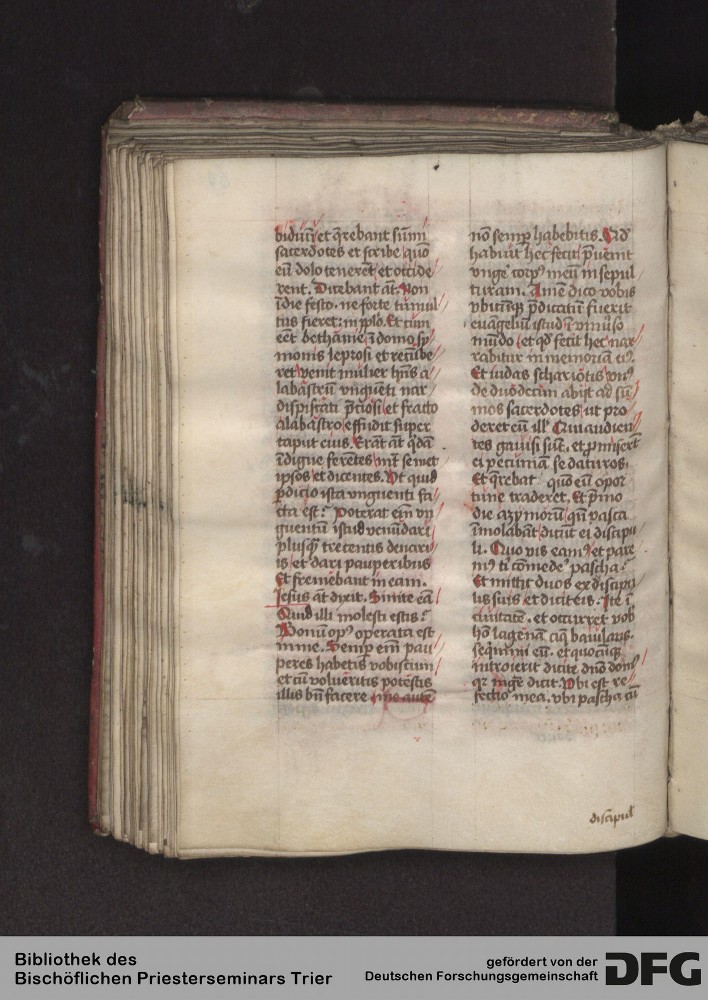 biduū et q̄rebant sūmi
sacerdotes et scribe quō
eū dolo tenerēt et occide
rent. Dicebant āt. Non
ī die festo. ne forte tumul
tus fieret in pplo. Et cum
eēt bethanie ī domo sy
monis leprosi et recūbe
ret venit mulier hn̄s a
labastrū vnguēti nar
dispicati p̄ciosi et fracto
alabastro effudit super
caput eius. Erāt āt q̄dā
īdigne ferētes int̄ semet
ipsos et dicentes. Vt quid
p̄dicio ista vnguenti fa
cta est? Poterat em̄ vn
guentū istud venūdari
plusq̄ trecentis denari
is et dari pauperibus
Et fremebant in eam.
Iesus āt dixit. Sinite eā
Quid illi molesti estis?
Bonū opꝰ operata est
in me. Semp em̄ pau
peres habetis vobiscum
et cū volueritis potestis
illis bn̄ facere me autē
nō semp habebitis. Qd
habuit hec fecit p̄uenit
vnge corpꝰ meū in sepul
turam. Amē dico vobis
vbicūq̄ p̄dicatū fuerit
euāgeliū istud ī vniūso
mūdo et qd fecit hec nar
rabitur in memoriam eiꝰ.
Et iudas schariotis vnꝰ
de duodecim abijt ad sū
mos sacerdotes ut pro
deret eū ill'. Qui audien
tes gauisi sūt. et promiserūt
ei pecuniam se daturos.
Et q̄rebat quō eū opor
tune traderet. Et p̄mo
die azymorū qn̄ pasca
īmolabāt dicūt ei discipu
li. Quo vis eamꝰ et pare
mꝰ ti cōmede pascha?
Et mittit duos ex discipu
lis suis et dicit eis. Ite ī
ciuitatē. et occurret vob
hō lagenā aq̄ baiulans.
seq̄mini eū. et quocūq̄
introierit dicite dn̄o domꝰ
qz mḡr dicit. Vbi est re
fectio mea. vbi pascha cū
discipul'
Bibliothek des
Bischöflichen Priesterseminars Trier
gefördert von der
Deutschen Forschungsgemeinschaft
DFG